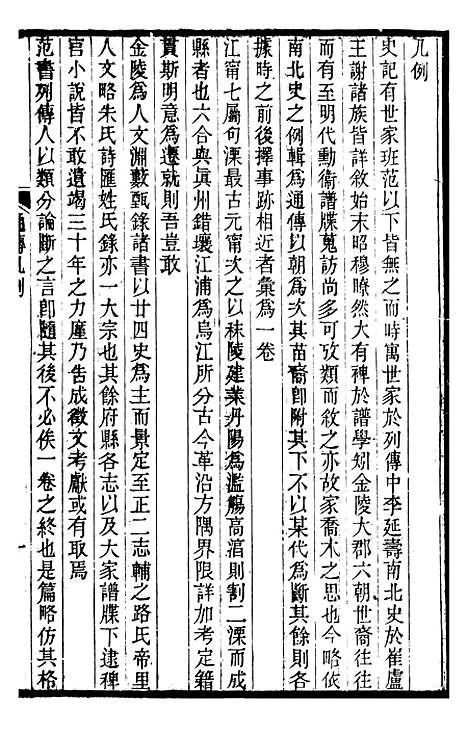 凡例
史記有世家班范以下皆無之而時寓世家於列傳中李延壽南北史於崔盧
王謝諸族皆詳敘始末昭穆瞭然大有裨於譜學矧金陵大郡六朝世裔往往
而有至明代勳衞譜牒蒐訪尚多可攷類而敘之亦故家喬木之思也今略依
南北史之例輯為通傳以朝為次其苗裔即附其下不以某代為斷其餘則各
據時之前後擇事跡相近者彙為一卷
江甯七屬句溧最古元甯次之以秣陵建業丹陽為濫觴高湻則割二溧而成
縣者也六合與眞州錯壤江浦為烏江所分古今革沿方隅界限詳加考定籍
貫斯明意為遷就則吾豈敢
金陵為人文淵藪甄錄諸書以廿四史為主而景定至正二志輔之路氏帝里
人文略朱氏詩匯姓氏錄亦一大宗也其餘府縣各志以及大家譜牒下逮稗
官小說皆不敢遺竭三十年之力廑乃告成徵文考獻或有取焉
范書列傳人以類分論斷之言卽隨其後不必俟一卷之終也是篇略仿其格
通傳凡例
一